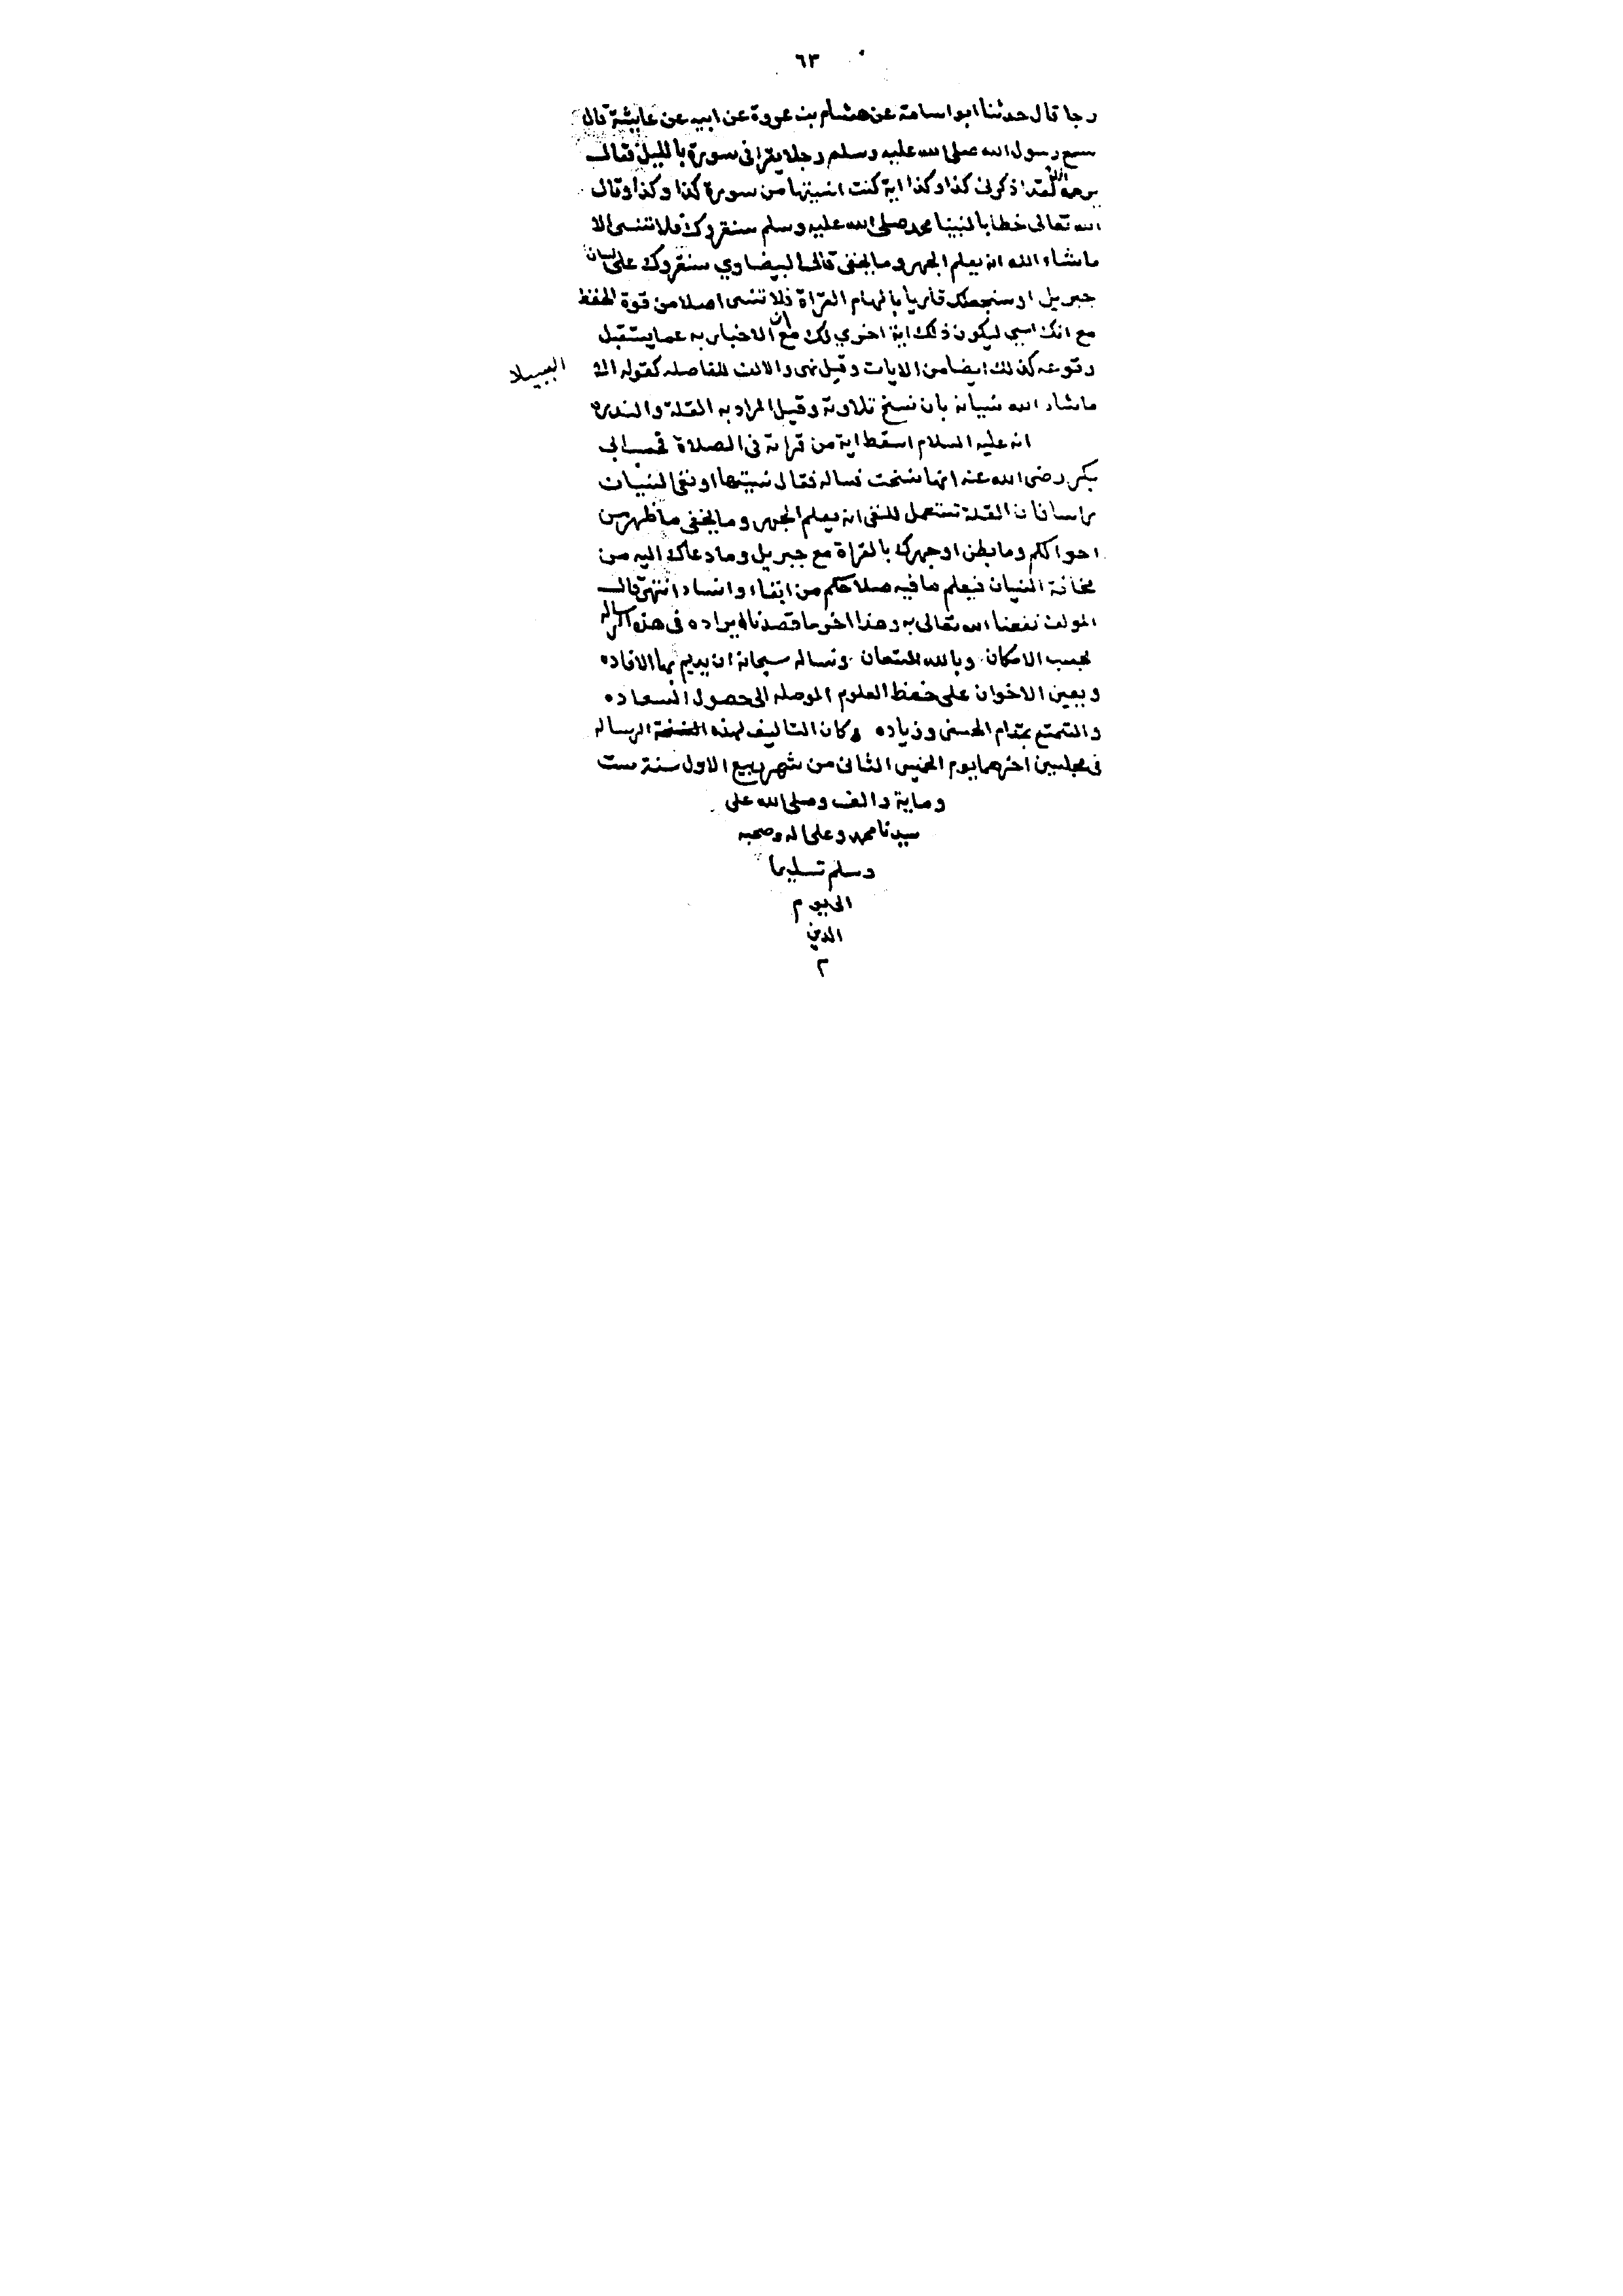 ٦٣
رجا قال حدثنا ابو اسامة عن هشام بن عروة عن ابيه عن عايشة قال
سمع رسول الله صلى الله عليه وسلم رجلا يقرا فى سورة بالليل فقال
يرحمه الله لقد اذكرنى كذا وكذا اية كنت انسيتها من سورة كذا وكذا وقال
الله تعالى خطابا لنبينا محمد صلى الله عليه وسلم سنقروك فلا تنسى الا
ما شاء الله انه يعلم الجهر وما يخفى قال البيضاوي سنقروك على لسان
جبريل او سنجعلك قاريا بالهام القراة فلا تنسى اصلا من قوة الحفظ
مع انك امي ليكون ذلك اية اخري لك مع ان الاخبار به عما يستقبل
وقوعه كذلك ايضا من الايات وقيل نهى والالف للفاصله كقوله الا
السبيلا
ما شاء الله نسيانه بان نسخ تلاوته وقيل المراد به القلة والندره
انه عليه السلام اسقط اية من قراته فى الصلاة فحسب ابى
بكر رضى الله عنه انها نسخت فساله فقال نسيتها او نفى النسيان
راسا فان القلة تستعمل للنفى انه يعلم الجهر وما يخفى ما ظهر من
احوالكم وما بطن او جهرك بالقراة مع جبريل وما دعاك اليه من
مخافة النسيان فيعلم ما فيه صلاحكم من ابقاء وانساء انتهى قال
المولف نفعنا الله تعالى به وهذا اخر ما قصدنا ايراده فى هذه الرساله
بحسب الامكان وبالله المستعان ونساله سبحانه ان يديم بها الافاده
ويعين الاخوان على حفظ العلوم الموصله الى حصول السعاده
والتمتع بمقام الحسنى وزياده وكان التاليف لهذه الرساله
فى مجلسين اخرهما يوم الخميس الثانى من شهر ربيع الاول سنة ست
وماية والف وصلى الله على
سيدنا محمد وعلى اله وصحبه
وسلم تسليما
الى يوم
الدين
م